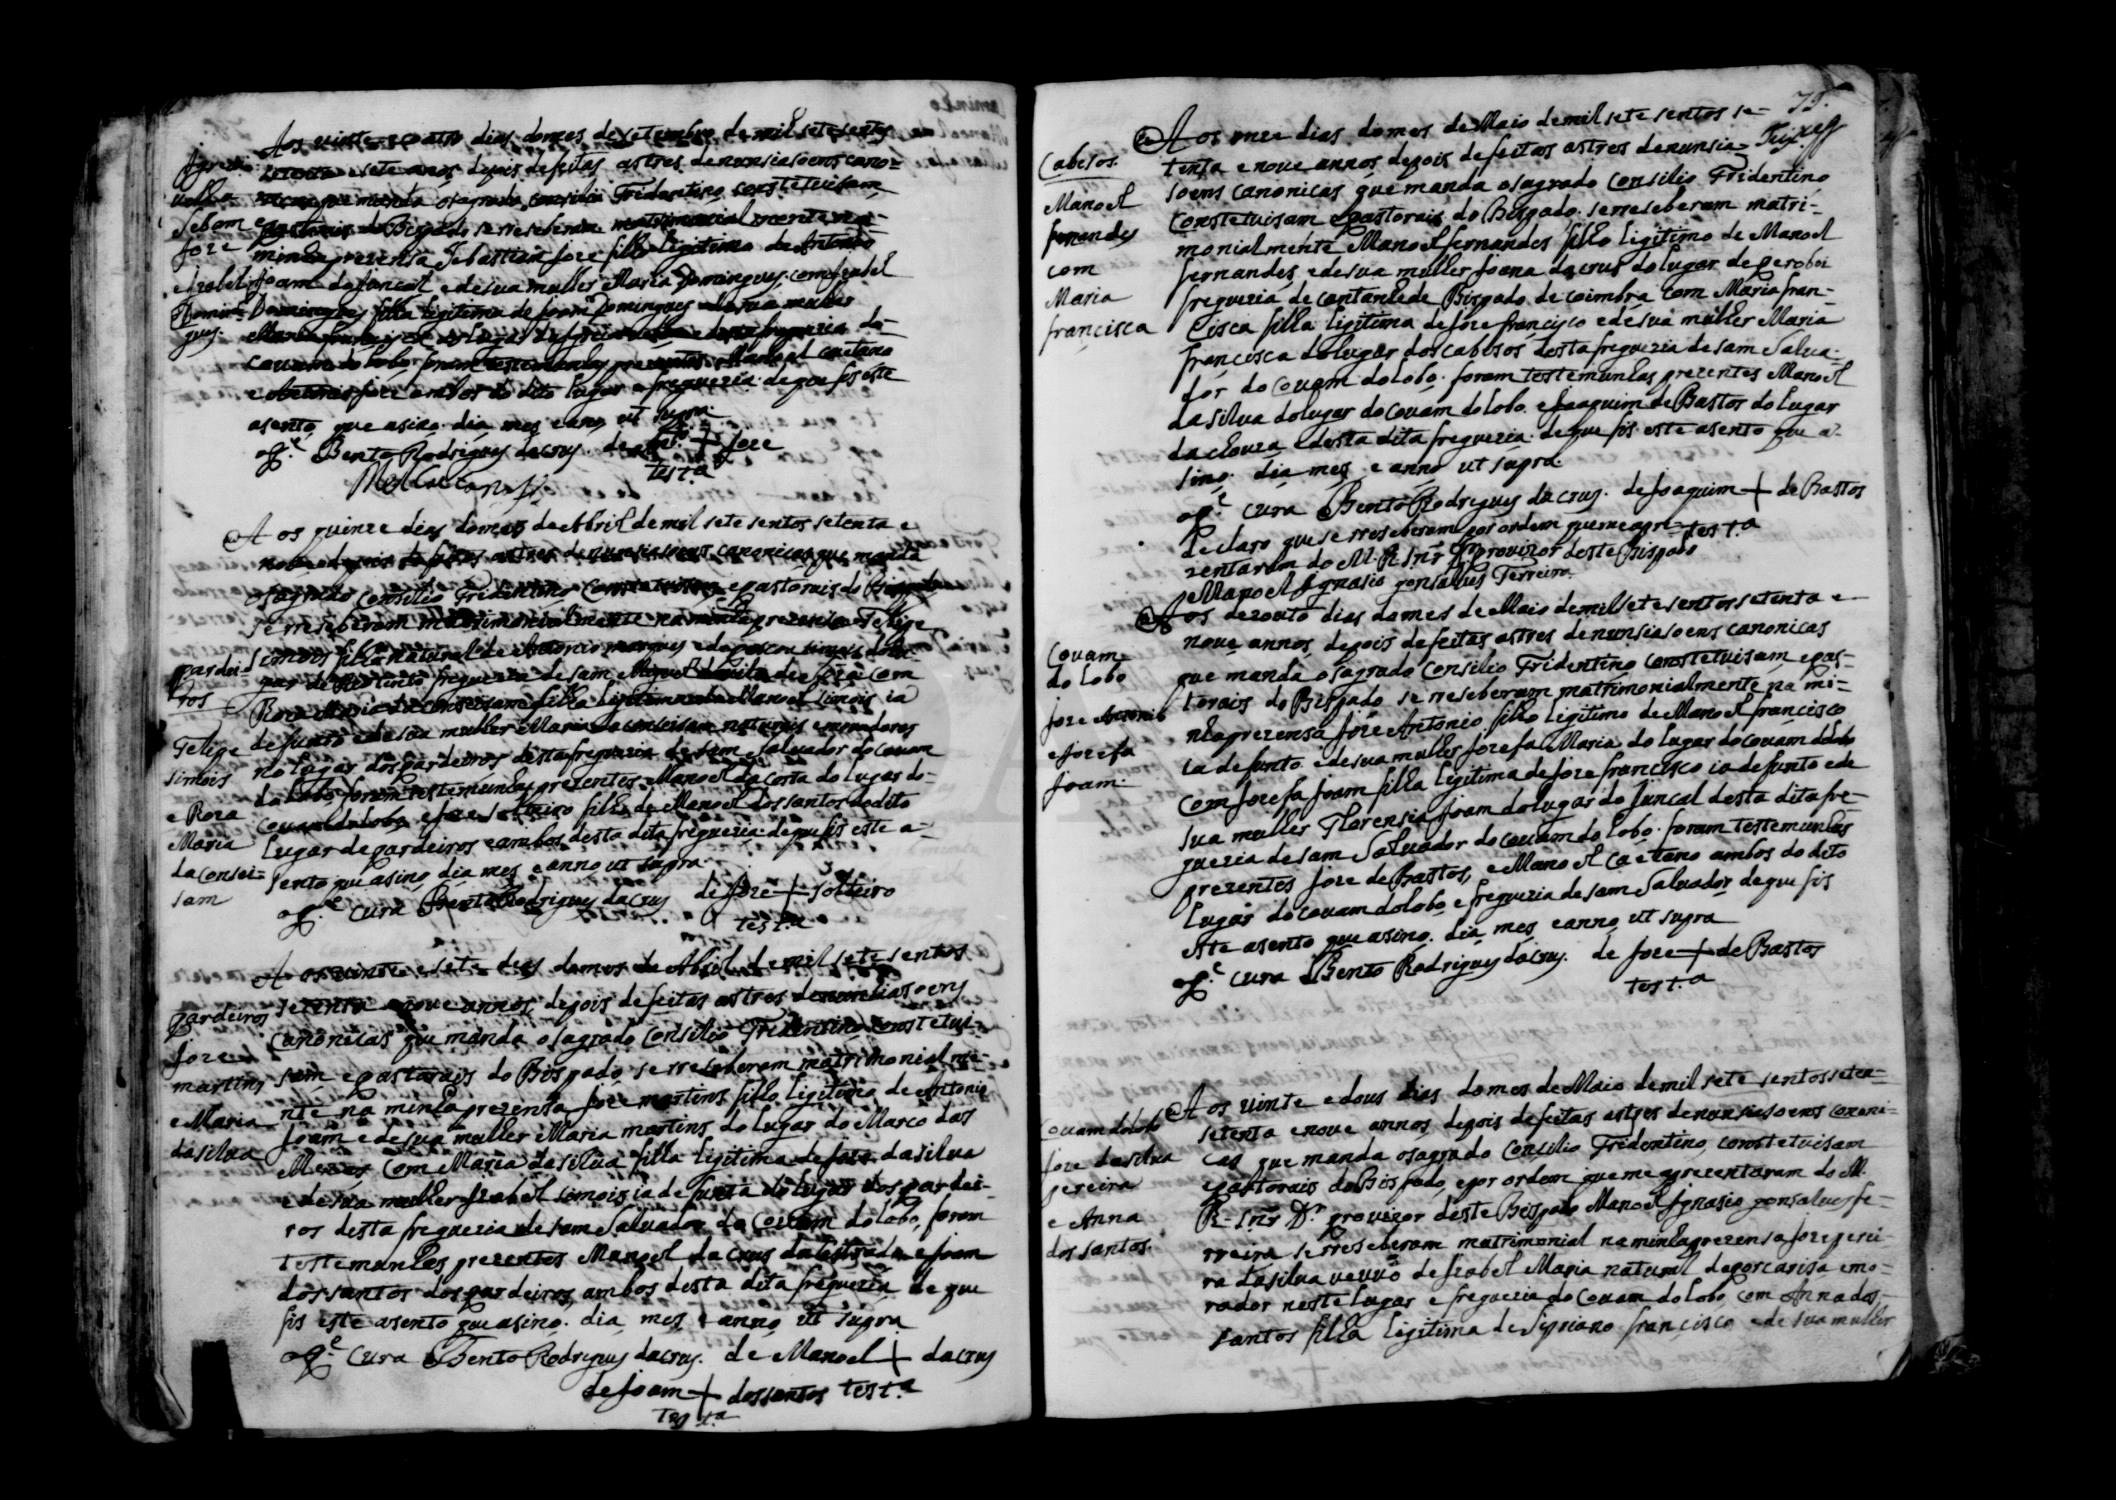 Aos vinte e coatro dias domes de setembro de mil sete sentos
setenta e sete anos depois defeitas astres denunsiasoens cano-
nicas que manda osagrado consilio Tridentino constetuisam
epastorais do Bispado se rreseberam matrimonialmente na-
minha prezensa Sebastiam Joze filho legitimo de Antonio
Joam do Juncal e desua mulher Maria Domingues, com Izabel
Domingues filha legitima de Joam Domingues e desua mulher
Covam do lobo foram testemunhas prezentes Manoel caetano
e Antonio joze ambos do dito lugar e freguezia de que fis este
asento que asino dia mes e ano ut supra
o P.e Bento Rodrigues da crus. de Ant.o + Joze
test.a
M.el Caetano
Sebam
Joze
e Izabel
Domin-
gues
Aos quinze dias domes de Abril de mil sete sentos setenta e
nove depois de feitas astres denunsiasoens canonicas que manda
osagrado consilio Tridentino constetuisam epastorais do Bispado
se rreseberam matrimonialmente na minha prezensa Felipe
simois filho natural de Antonio marques e de
freguezia de sam Miguel com
Roza Maria da conseisam filha legitima de Manoel simois ia
defunto e de sua mulher Maria da conseisam naturais e moradores
no lugar dos pardeiros desta freguezia de sam salvador do covam
do Lobo foram testemunhas prezentes Manoel da costa do lugar do-
covam do lobo e Joze solteiro filho de Manoel dos santos do dito
lugar de pardeiros e ambos desta dita freguezia de que fis este a-
sento que asino dia mes e anno ut supra
o P.e cura Bento Rodrigues da crus de Joze + solteiro
test.a
pardei-
ros
Felipe
simois
e Roza
Maria
da consei-
sam
Aos vinte e sete dias domes de Abril de mil sete sentos
setenta e nove annos depois de feitas astres denunsiasoens
canonicas que manda o sagrado consilio Tridentino constetui-
sam e pastorais do Bispado se rreseberam matrimonialme-
nte na minha prezensa Joze martins filho legitimo de Antonio
Joam e de sua mulher Maria martins do lugar do Marco das
Mezas com Maria da silva filha legitima de Joze da silva
e de sua mulher Izabel simois ia defunta do lugar dos pardei-
ros desta freguezia de sam Salvador do Covam do lobo, foram
testemunhas prezentes Manoel da crus da lestrada e Joam
dos santos dos pardeiros, ambos desta dita freguezia de que
fis este asento que asino. dia, mes, e anno, ut supra
o P.e cura Bento Rodrigues da crus. de Manoel + da crus
de Joam + dos santos test.a
test.a
pardeiros
Joze
martins
e Maria
da silva
75.
Aos onze dias domes de Maio demil sete sentos se-
tenta e nove annos depois de feitas astres denunsia-
soens canonicas que manda osagrado consilio Tridentino
constetuisam epastorais do Bispado se rreseberam matri-
monialmente Manoel fernandes filho legitimo de Manoel
fernandes, e desua mulher Joana da crus do lugar de
freguezia de cantanhede Bispado de coimbra com Maria fran-
cisca filha legitima de Joze francisco e de sua mulher Maria
francisca do lugar dos cabesos desta freguezia de sam Salva-
dor do covam do lobo. foram testemunhas prezentes Manoel
da silva do lugar do covam do lobo e Joaquim de Bastos do lugar
desta dita freguezia de que fis este asento que a-
sino. dia mes e anno ut supra.
o P.e cura Bento Rodrigues da crus. de Joaquim + de Bastos
test.a
Declaro que se rreseberam por ordem que me apre-
zentaram do M. R. Snr Dr provizor deste Bispado
Manoel Ignasio gonsalves Ferreira.
Cabesos.
Manoel
fernandes
com
Maria
francisca
Aos dezouto dias domes de Maio demil sete sentos setenta e
nove annos, depois de feitas astres denunsiasoens canonicas
que manda o sagrado consilio Tridentino constetuisam epas-
torais do Bispado se rreseberam matrimonialmente na mi-
nha prezensa Joze Antonio filho legitimo de Manoel francisco
ia defunto e desua mulher Jozefa Maria do lugar do covam do lobo
com Jozefa Joam filha legitima de Joze francisco ia defunto e de
sua mulher Florensia Joam do lugar do Juncal desta dita fre-
guezia de sam Salvador do covam do lobo. foram testemunhas
prezentes Joze de Bastos, e Manoel Caetano ambos do dito
lugar do covam do lobo e freguezia de sam Salvador de que fis
este asento que asino. dia, mes, e anno, ut supra
o P.e cura Bento Rodrigues da crus. de Joze + de Bastos
test.a
Covam
do Lobo
Joze Antonio
e Jozefa
Joam.
Aos vinte e dous dias domes de Maio demil sete sentos seten-
setenta e nove annos depois de feitas astres denunsiasoens canoni-
cas que manda osagrado consilio Tridentino, constetuisam
epastorais do Bispado, e por ordem que me aprezentaram do M.
R. Snr Dr provizor deste Bispado Manoel Ignasio gonsalves fe-
rreira se rreseberam matrimonial na minha prezensa Joze perei-
ra da silva veuvo de Izabel Maria natural de porcarisa e mo-
rador neste lugar e freguezia do covam do lobo, com Anna dos-
santos filha legitima de Sypriano francisco e de sua mulher
covam do lobo
Joze da silva
pereira
e Anna
dos santos.